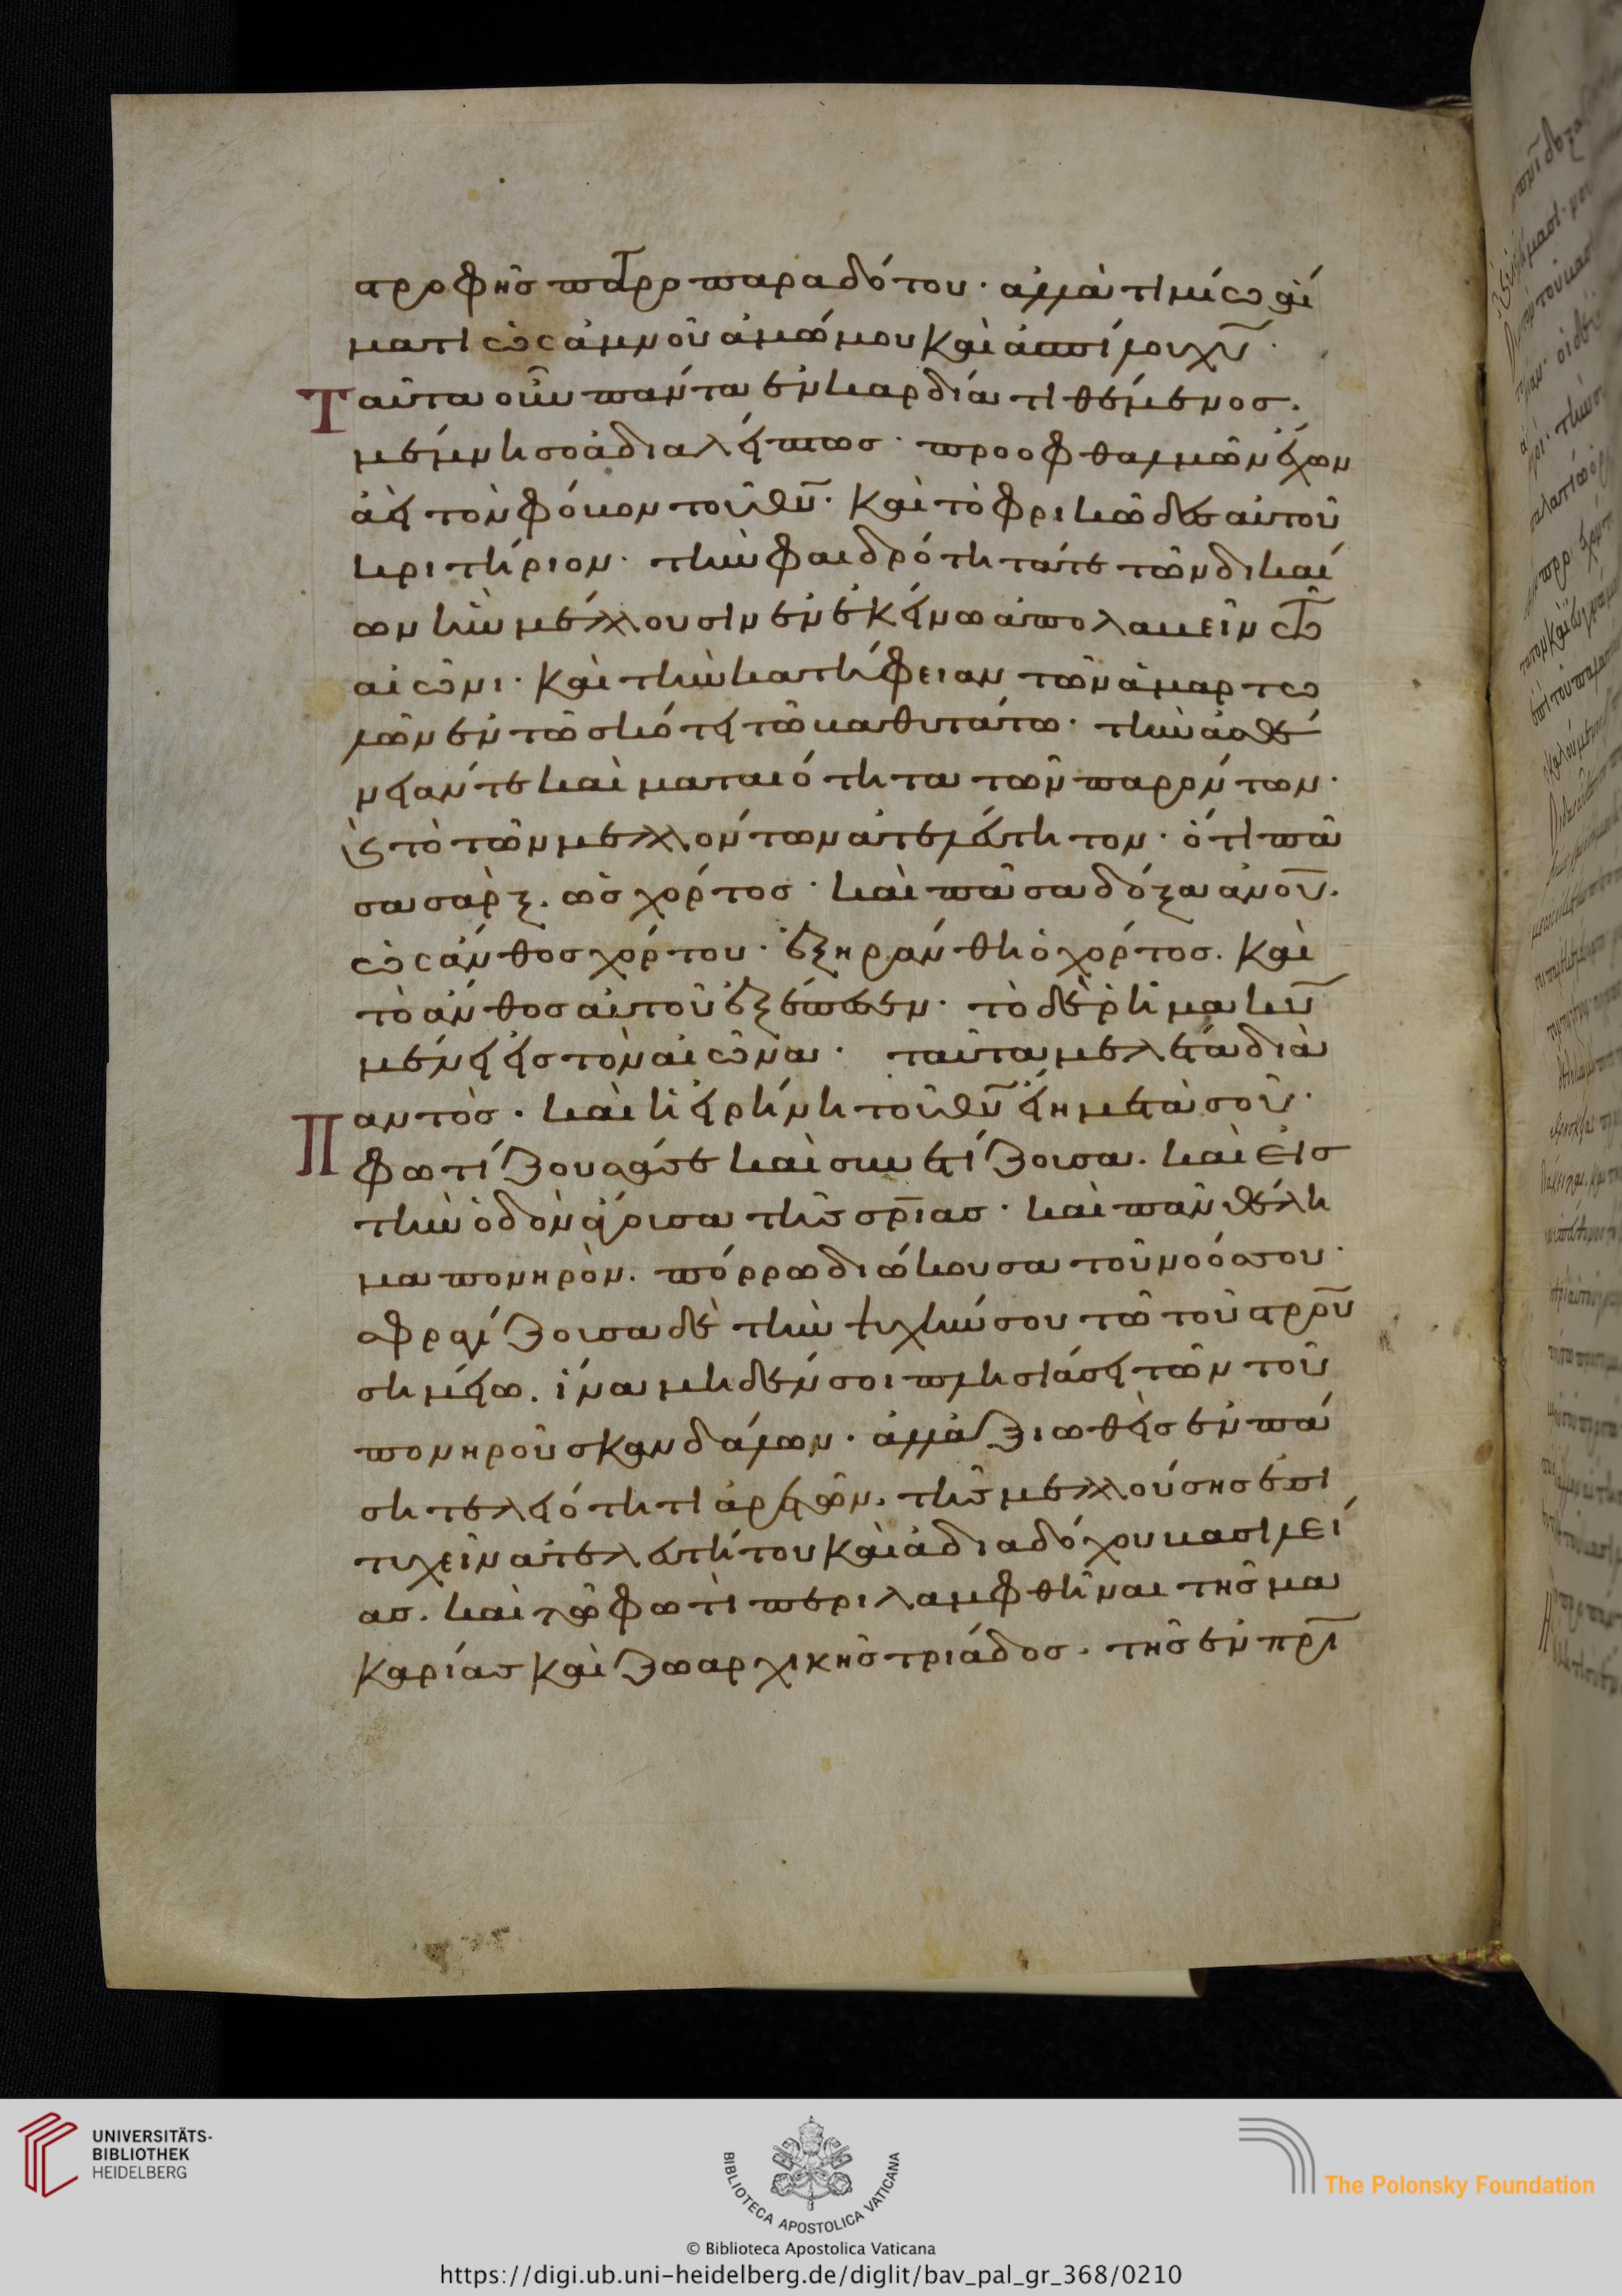 στροφῆς πατροπαραδότου· ἀλλὰ τιμίω αἵ
ματι ὡς ἀμνοῦ ἀμώμου καὶ ἀσπίλου χυ·
Ταῦτα οὖν πάντα ἐν καρδία τιθέμενος.
μέμνησο ἀδιαλείπτως· πρὸ ὀφθαλμῶν ἔχων
ἀεὶ τὸν φόβον τοῦ θυ· καὶ τὸ φρικῶδες αὐτοῦ
κριτήριον· τὴν φαιδρότητά τε τῶν δικαί
ων ἣν μέλλουσιν ἐν ἐκείνω ἀπολαβεῖν τῶ
αἰῶνι· καὶ τὴν κατήφειαν τῶν ἁμαρτω
λῶν ἐν τῶ σκότει τῶ βαθυτάτω· τὴν ἀσθέ
νειάν τε καὶ ματαιότητα τῶν παρόντων·
καὶ τὸ τῶν μελλόντων ἀτελεύτητον· ὅτι πᾶ
σα σὰρξ. ὡς χόρτος· καὶ πᾶσα δόξα ανου.
ὡς ἄνθος χόρτου· ἐξηράνθη ὁ χόρτος. καὶ
τὸ ἄνθος αὐτοῦ ἐξέπεσεν· τὸ δὲ ῥῆμα κυ
μένει εἰς τὸν αἰῶνα· ταῦτα μελέτα διὰ
Παντὸς· καὶ ἡ εἰρήνη τοῦ θυ εἴη μετὰ σοῦ·
φωτίζουσά τε καὶ συνετίζουσα. καὶ εἰς
τὴν ὁδὸν ἄγουσα τῆς σριας· καὶ πᾶν θέλη
μα πονηρὸν. πόρρω διώκουσα τοῦ νοός σου·
σφραγίζουσα δὲ τὴν ψυχήν σου τῶ τοῦ στρου
σημείω. ἵνα μηδέν σοι πλησιάσει τῶν τοῦ
πονηροῦ σκανδάλων· ἀλλ' ἀξιωθεὶς ἐν πά
ση τελειότητι ἀρετῶν. τῆς μελλούσης ἐπι
τυχεῖν ἀτελευτήτου καὶ ἀδιαδόχου βασιλεί
ας. καὶ τῶ φωτὶ περιλαμφθῆναι τῆς μα
καρίας καὶ ζωαρχικῆς τριάδος. τῆς ἐν πρι
UNIVERSITÄTS-
BIBLIOTHEK
HEIDELBERG
BIBLIOTECA APOSTOLICA VATICANA
The Polonsky Foundation
© Biblioteca Apostolica Vaticana
https://digi.ub.uni-heidelberg.de/diglit/bav_pal_gr_368/0210